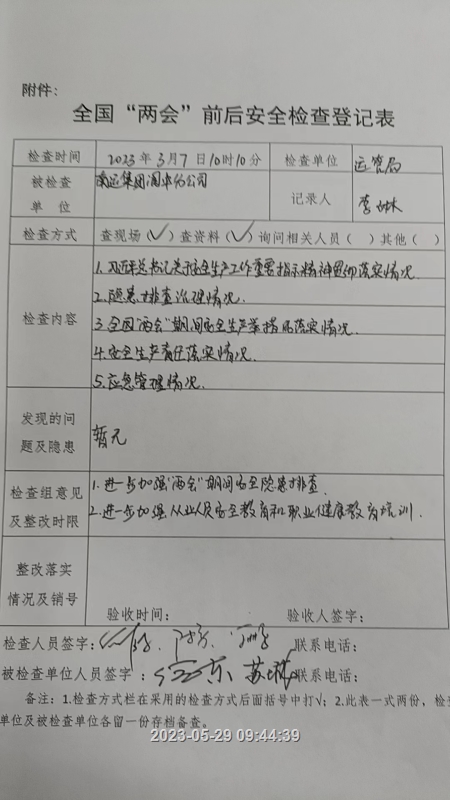 附件：
全国“两会”前后安全检查登记表
检查时间 2023年3月7日10时10分 检查单位 运管局
被检查单位 南运集团阆中分公司 记录人 李
检查方式 查现场（√）查资料（√）询问相关人员（ ）其他（ ）
检查内容
1.习近平总书记关于安全生产工作重要指示精神贯彻落实情况.
2.隐患排查治理情况.
3.全国“两会”期间安全生产举措落实情况.
4.安全生产责任落实情况.
5.应急管理情况.
发现的问题及隐患 暂无
检查组意见及整改时限
1.进一步加强“两会”期间安全隐患排查.
2.进一步加强从业人员安全教育和职业健康教育培训.
整改落实情况及销号
验收时间： 验收人签字：
检查人员签字： 联系电话：
被检查单位人员签字： 联系电话：
备注：1.检查方式栏在采用的检查方式后面括号中打√；2.此表一式两份，检查
单位及被检查单位各留一份存档备查。
2023-05-29 09:44:39